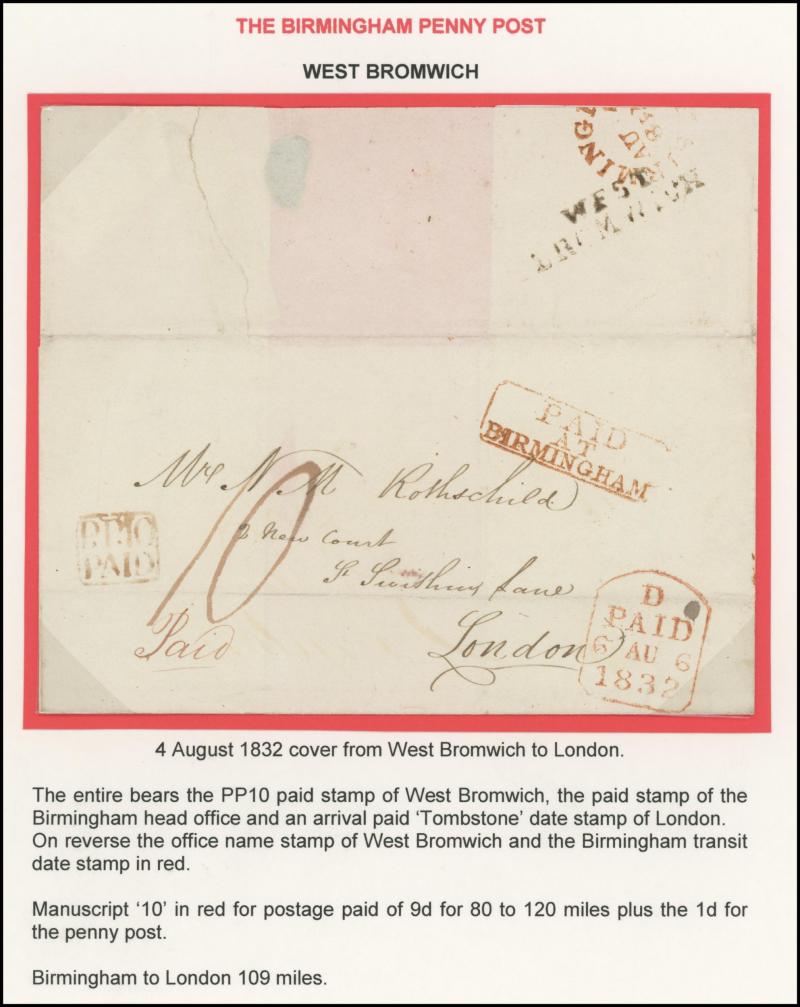 THE BIRMINGHAM PENNY POST
WEST BROMWICH
WEST
BROMWICH
PAID
AT
BIRMINGHAM
Mr N M Rothschild
2 New Court
St Swithins Lane
London
10
Paid
PAID
D
PAID
6 AU 6
1832
4 August 1832 cover from West Bromwich to London.
The entire bears the PP10 paid stamp of West Bromwich, the paid stamp of the
Birmingham head office and an arrival paid ‘Tombstone’ date stamp of London.
On reverse the office name stamp of West Bromwich and the Birmingham transit
date stamp in red.
Manuscript ‘10’ in red for postage paid of 9d for 80 to 120 miles plus the 1d for
the penny post.
Birmingham to London 109 miles.